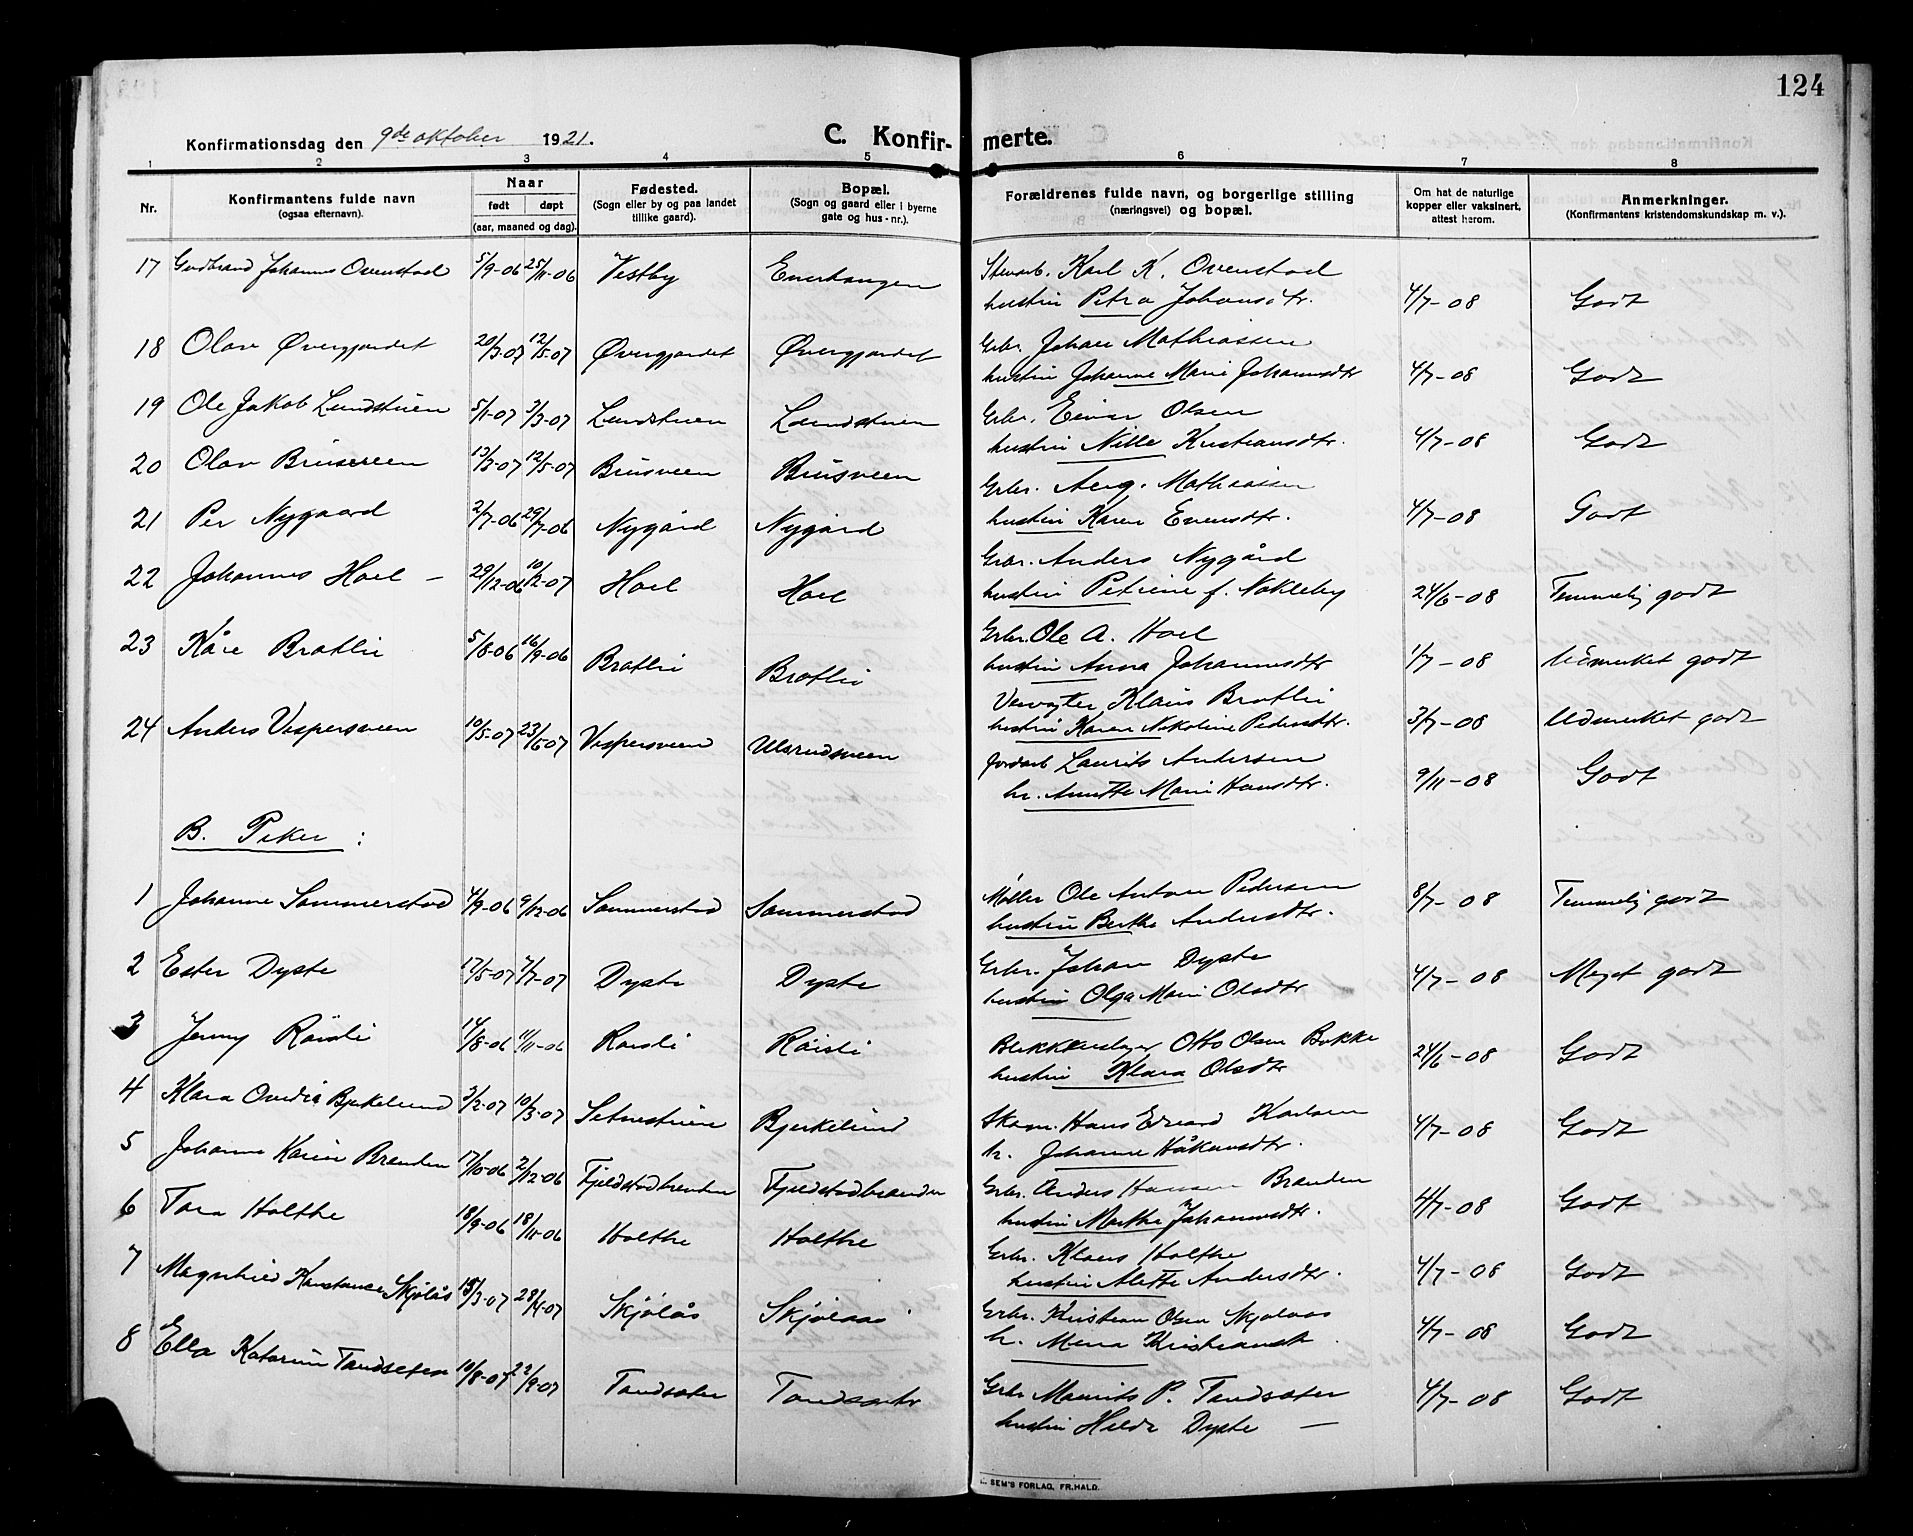 124
Konfirmationsdag den 9de oktober 1921.
C. Konfir- merte.
1 2 3 4 5 6 7 8
Nr.
Konfirmantens fulde navn
(ogsaa efternavn).
Naar
født døpt
(aar, maaned og dag).
Fødested.
(Sogn eller by og paa landet
tillike gaard).
Bopæl.
(Sogn og gaard eller i byerne
gate og hus-nr.).
Forældrenes fulde navn, og borgerlige stilling
(næringsvei) og bopæl.
Om hat de naturlige
kopper eller vaksinert,
attest herom.
Anmerkninger.
(Konfirmantens kristendomskundskap m. v.).
17 Gudbrand Johannes Ovenstad 5/9-06 25/11-06 Vestby Enerhaugen
Stenarb. Karl K. Ovenstad
hustru Petra Johansdtr. 4/7-08 Godt
18 Olav Øvergjordet 20/3-07 12/5-07 Øvergjordet Øvergjordet
Grbr. Johan Mathiassen
hustru Johanne Marie Johannsdtr 4/7-08 Godt
19 Ole Jakob Lundstuen 5/1-07 3/3-07 Lundstuen Lundstuen
Grbr. Einar Olsen
hustru Nille Kristiansdtr. 4/7-08 Godt
20 Olav Brusveen 13/3-07 12/5-07 Brusveen Brusveen
Grbr. Aug. Mathiassen
hustru Karen Evensdtr. 4/7-08 Godt
21 Per Nygaard 2/7-06 29/7-06 Nygård Nygård
Grbr. Anders Nygård
hustru Petrine f. Nøkleby 24/6-08 Temmelig godt
22 Johannes Hoel - 29/12-06 10/2-07 Hoel Hoel
Grbr. Ole A. Hoel
hustru Anna Johannesdtr 1/7-08 Udmerket godt
23 Kåre Bratlie 5/8-06 16/9-06 Bratlie Bratlie
Veivogter Klaus Bratlie
hustru Karen Nikoline Pedersdtr. 3/7-08 Udmerket godt
24 Anders Vespersveen 10/5-07 23/6-07 Vespersveen Ulsrudsveen
Jordarb Laurits Andersen
h. Anette Marie Hansdtr. 9/11-08 Godt
B. Piker:
1 Johanne Sommerstad 4/9-06 9/12-06 Sommerstad Sommerstad
Møller Ole Anton Pedersen
hustru Berthe Andersdtr. 8/7-08 Temmelig godt
2 Ester Dyste 17/5-07 7/7-07 Dyste Dyste
Grbr. Johan Dyste
hustru Olga Marie Olsdtr 4/7-08 Meget godt
3 Jenny Røisli 14/8-06 1/11-06 Røisli Røisli
Blikkenslager Otto Olsen Bakke
hustru Klara Olsdtr 24/6-08 Godt
4 Klara Ovedia Bjerkelund 3/2-07 10/3-07 Setnestuen Bjerkelund
Skom. Hans Edvard Karlsen
h. Johanne Håkensdtr. 4/7-08 Godt
5 Johanne Karin Brenden 17/10-06 2/12-06 Fjeldstadbrenden Fjeldstadbrenden
Grbr. Anders Hansen Brenden
hustru Marthe Johannesdtr. 4/7-08 Godt
6 Tora Holthe 18/9-06 18/11-06 Holthe Holthe
Grbr. Klaus Holthe
hustru Alette Andersdtr. 4/7-08 Godt
7 Magnhild Konstanse Skjølås 15/3-07 28/4-07 Skjølås Skjølaas
Grbr. Kristian Olsen Skjølaas
h. Mena Kristiansdt. 4/7-08 Godt
8 Ella Katarina Tandsæter 10/8-07 22/9-07 Tandsæter Tandsæter
Grbr Maurits P. Tandsæter
hustru Hilda Dyste - 4/7-08 Godt
SEM'S FORLAG, FR.HALD.